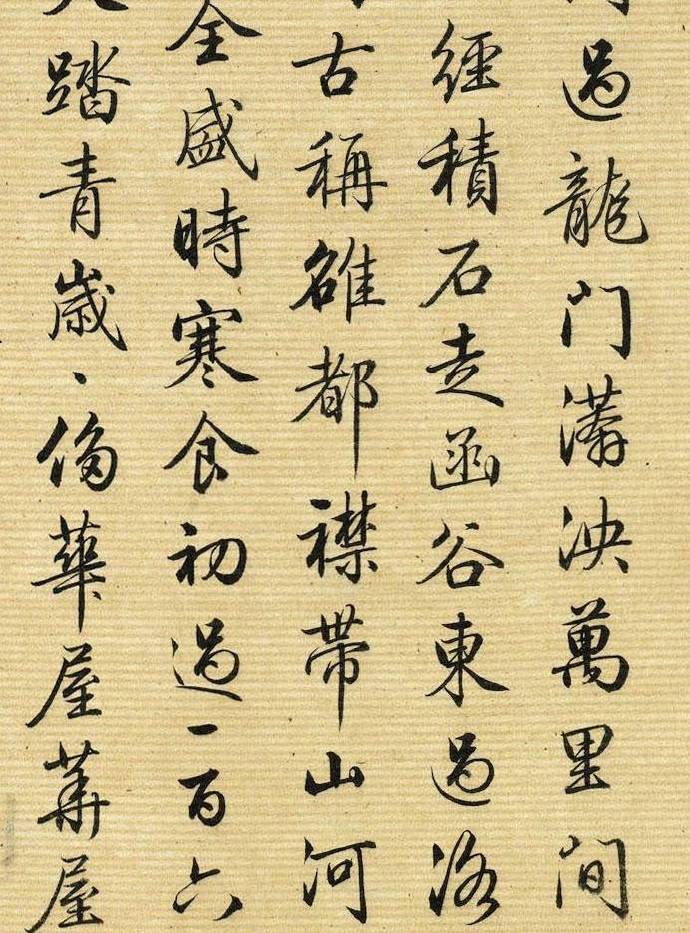 過龍門泱萬里間
經積石走函谷東過洛
古稱雒都襟帶山河
全盛時寒食初過一百六
踏青歲、侈華屋華屋